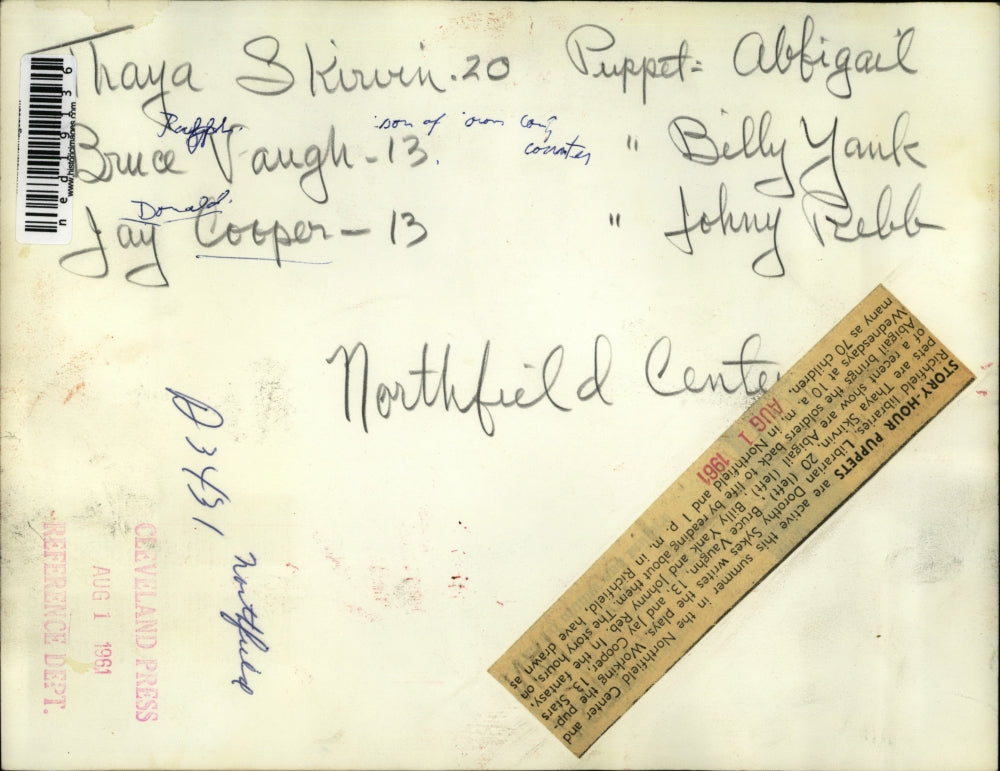 Thaya Skirvin. 20 Puppet = Abbigail
Ralph. son of iron
Bruce Vaugh - 13. counter " Billy Yank
Donald.
Jay Cooper - 13 " Johny Rebb
Northfield Center
D3431 Northfield
CLEVELAND PRESS
AUG 1 1961
REFERENCE DEPT.
www.historicimages.com
STORY-HOUR PUPPETS are active this summer in the Northfield Center and
Richfield libraries. Librarian Dorothy Sykes writes the plays. Working the pup-
pets are Thaya Skirvin, 20 (left), Bruce Vaughn, 13, and Jay Cooper, 13. Stars
of a recent show are Abigail (left), Billy Yank and Johnny Reb. In the fantasy,
Abigail brings the soldiers back to life by reading about them. The story hours, on
Wednesdays at 10 a. m. in Northfield and 1 p. m. in Richfield, have drawn as
many as 70 children.
AUG 1 1961